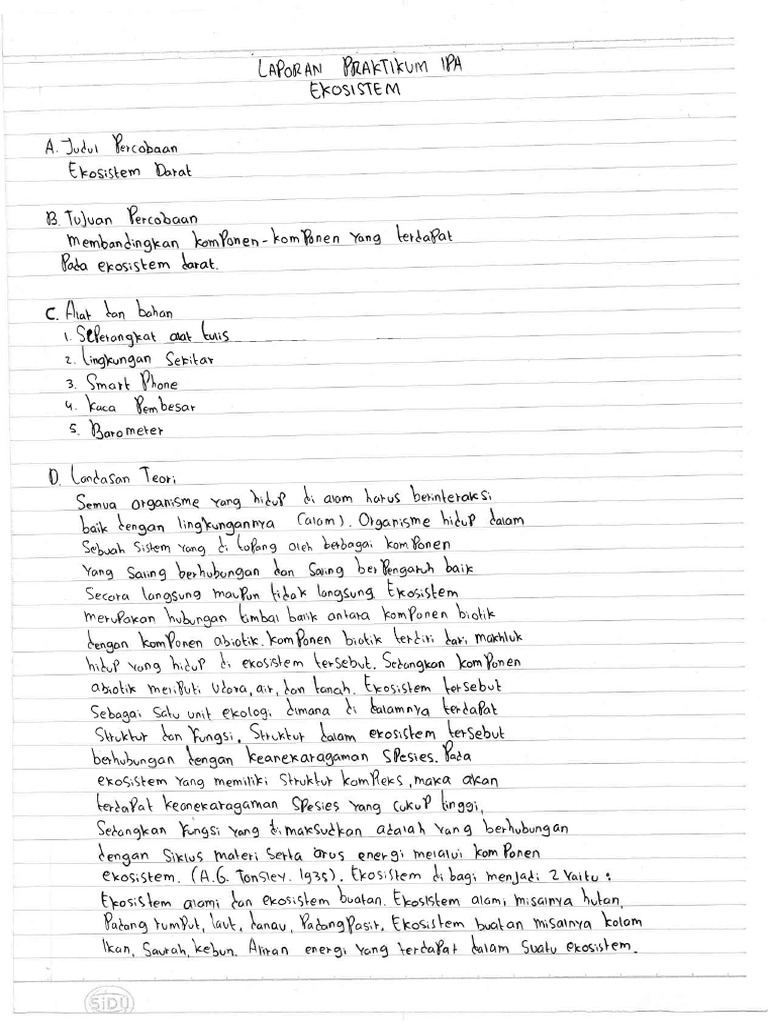 LAPORAN PRAKTIKUM IPA
EKOSISTEM
A. Judul Percobaan
Ekosistem Darat
B. Tujuan Percobaan
membandingkan komponen-komponen yang terdapat
Pada ekosistem darat.
C. Alat dan bahan
1. Seperangkat alat tulis
2. lingkungan Sekitar
3. Smart Phone
4. kaca Pembesar
5. Barometer
D. Landasan Teori
Semua organisme yang hidup di alam harus berinteraksi
baik dengan lingkungannya (alam). Organisme hidup dalam
Sebuah Sistem yang di topang oleh berbagai komponen
yang Saling berhubungan dan Saling berpengaruh baik
Secara langsung maupun tidak langsung Ekosistem
merupakan hubungan timbal balik antara komponen biotik
dengan komponen abiotik. komponen biotik terdiri dari makhluk
hidup yang hidup di ekosistem tersebut. Sedangkan komponen
abiotik meliputi udara, air, dan tanah. Ekosistem tersebut
Sebagai Satu unit ekologi dimana di dalamnya terdapat
Struktur dan Fungsi. Struktur dalam ekosistem tersebut
berhubungan dengan keanekaragaman Spesies. Pada
ekosistem yang memiliki Struktur kompleks, maka akan
terdapat keanekaragaman Spesies yang cukup tinggi,
Sedangkan Fungsi yang dimaksudkan adalah yang berhubungan
dengan Siklus materi Serta arus energi melalui komponen
ekosistem. (A.G. Tansley. 1935). Ekosistem di bagi menjadi 2 Yaitu :
Ekosistem alami dan ekosistem buatan. Ekosistem alami misalnya hutan,
Padang rumput, laut, danau, Padang Pasir. Ekosistem buatan misalnya kolam
Ikan, Sawah, kebun. Aliran energi yang terdapat dalam Suatu ekosistem.
SiDU